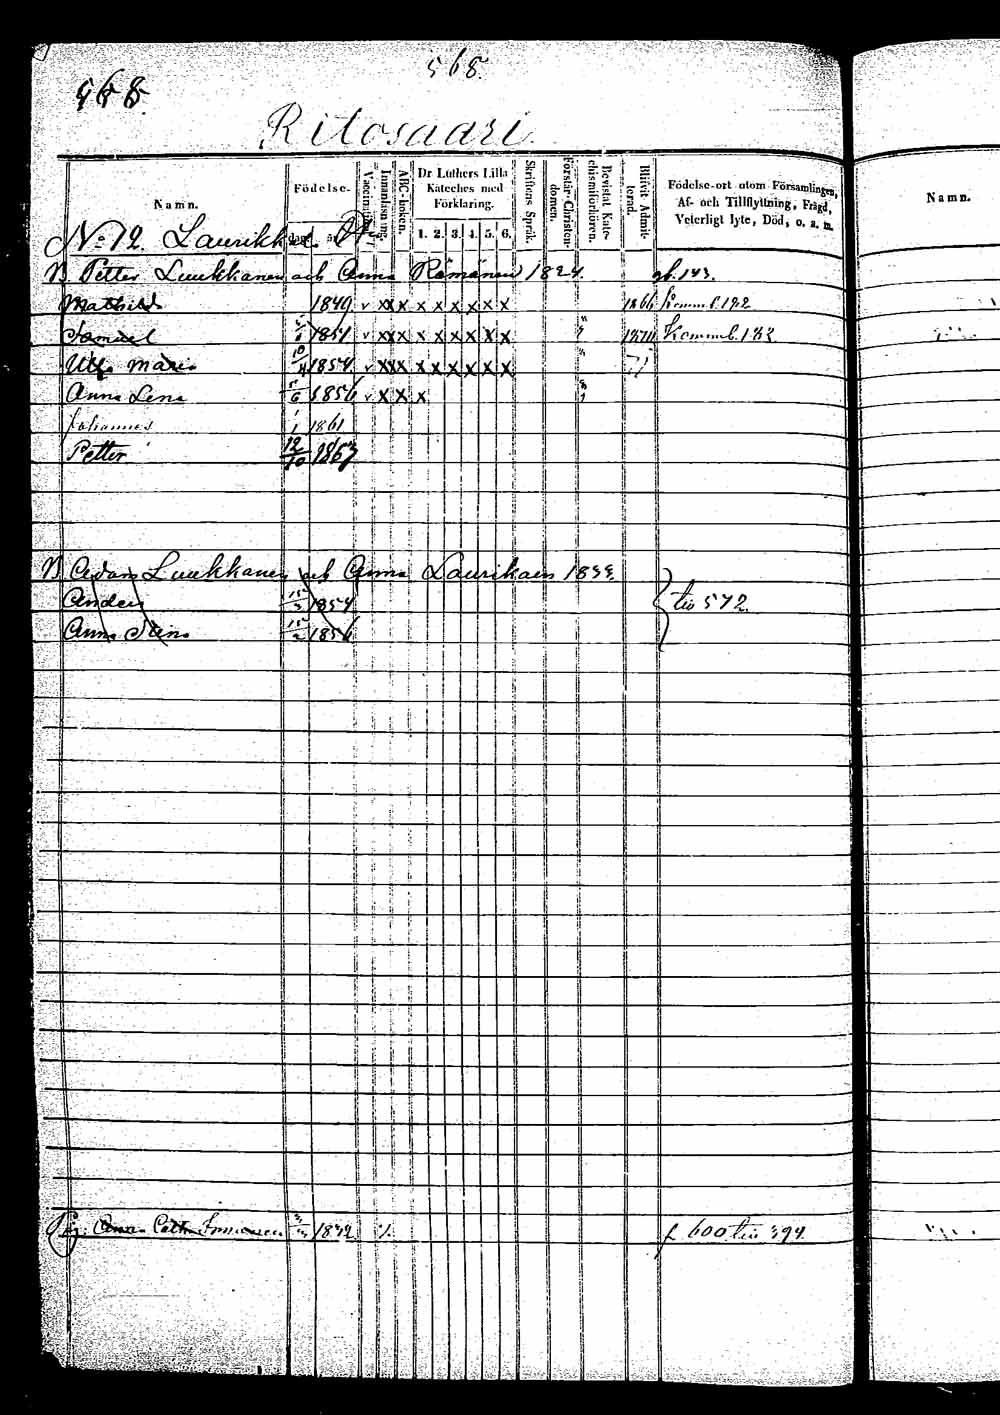 568.
568
Ritosaari.
Namn.
Födelse-
dag. år.
Vaccinerad.
Innanläsning.
ABC-boken.
Dr Luthers Lilla Kateches med Förklaring.
1. 2. 3. 4. 5. 6.
Skriftens Språk.
Förstår Christendomen.
Bevistat Katechismiförhören.
Blifvit Admitterad.
Födelse-ort utom Församlingen, Af- och Tillflyttning, Frägd, Veterligt lyte, Död, o. a. m.
Namn.
No 12.
B. Petter Luukkanen och Anna Römänen 1824. gb. 143.
Mathild 1849. v x x x x x x x x 1866 Komm.b. 122
Samuel 1851 v x x x x x x x x x 1870 Komm.b. 132
Ulla Maria 10/4 1854. v x x x x x x x x 71
Anna Lena 5/6 1856 v x x x
Johannes 1861
Petter 12/10 1867
B. Adam Luukkanen och Anna Laurikain 1833.
Anders 15/3 1854
Anna Stina 15/2 1856
till 572.
Pig. Anna Cath. 1832 f 600 till 394.